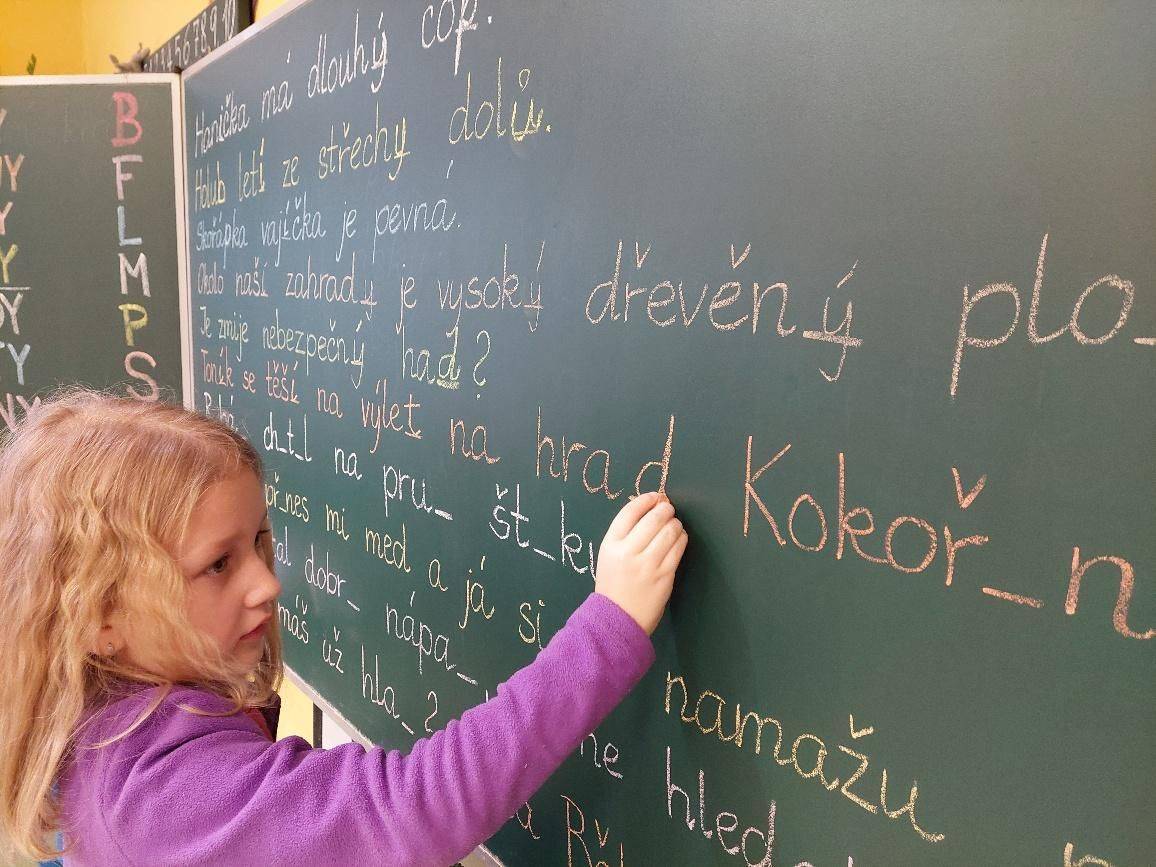 4 5 6 7 8 9 10
B
F
L
M
P
S
Hanička má dlouhý cop.
Holub letí ze střechy dolů.
Skořápka vajíčka je pevná.
Okolo naší zahrady je vysoký dřevěný plo_
Je zmije nebezpečný had?
Toník se těší na výlet na hrad Kokoř_n
ch_t_l na pru_ št_ku
př_nes mi med a já si namažu
dobr_ nápa_
máš už hla_? ne hled